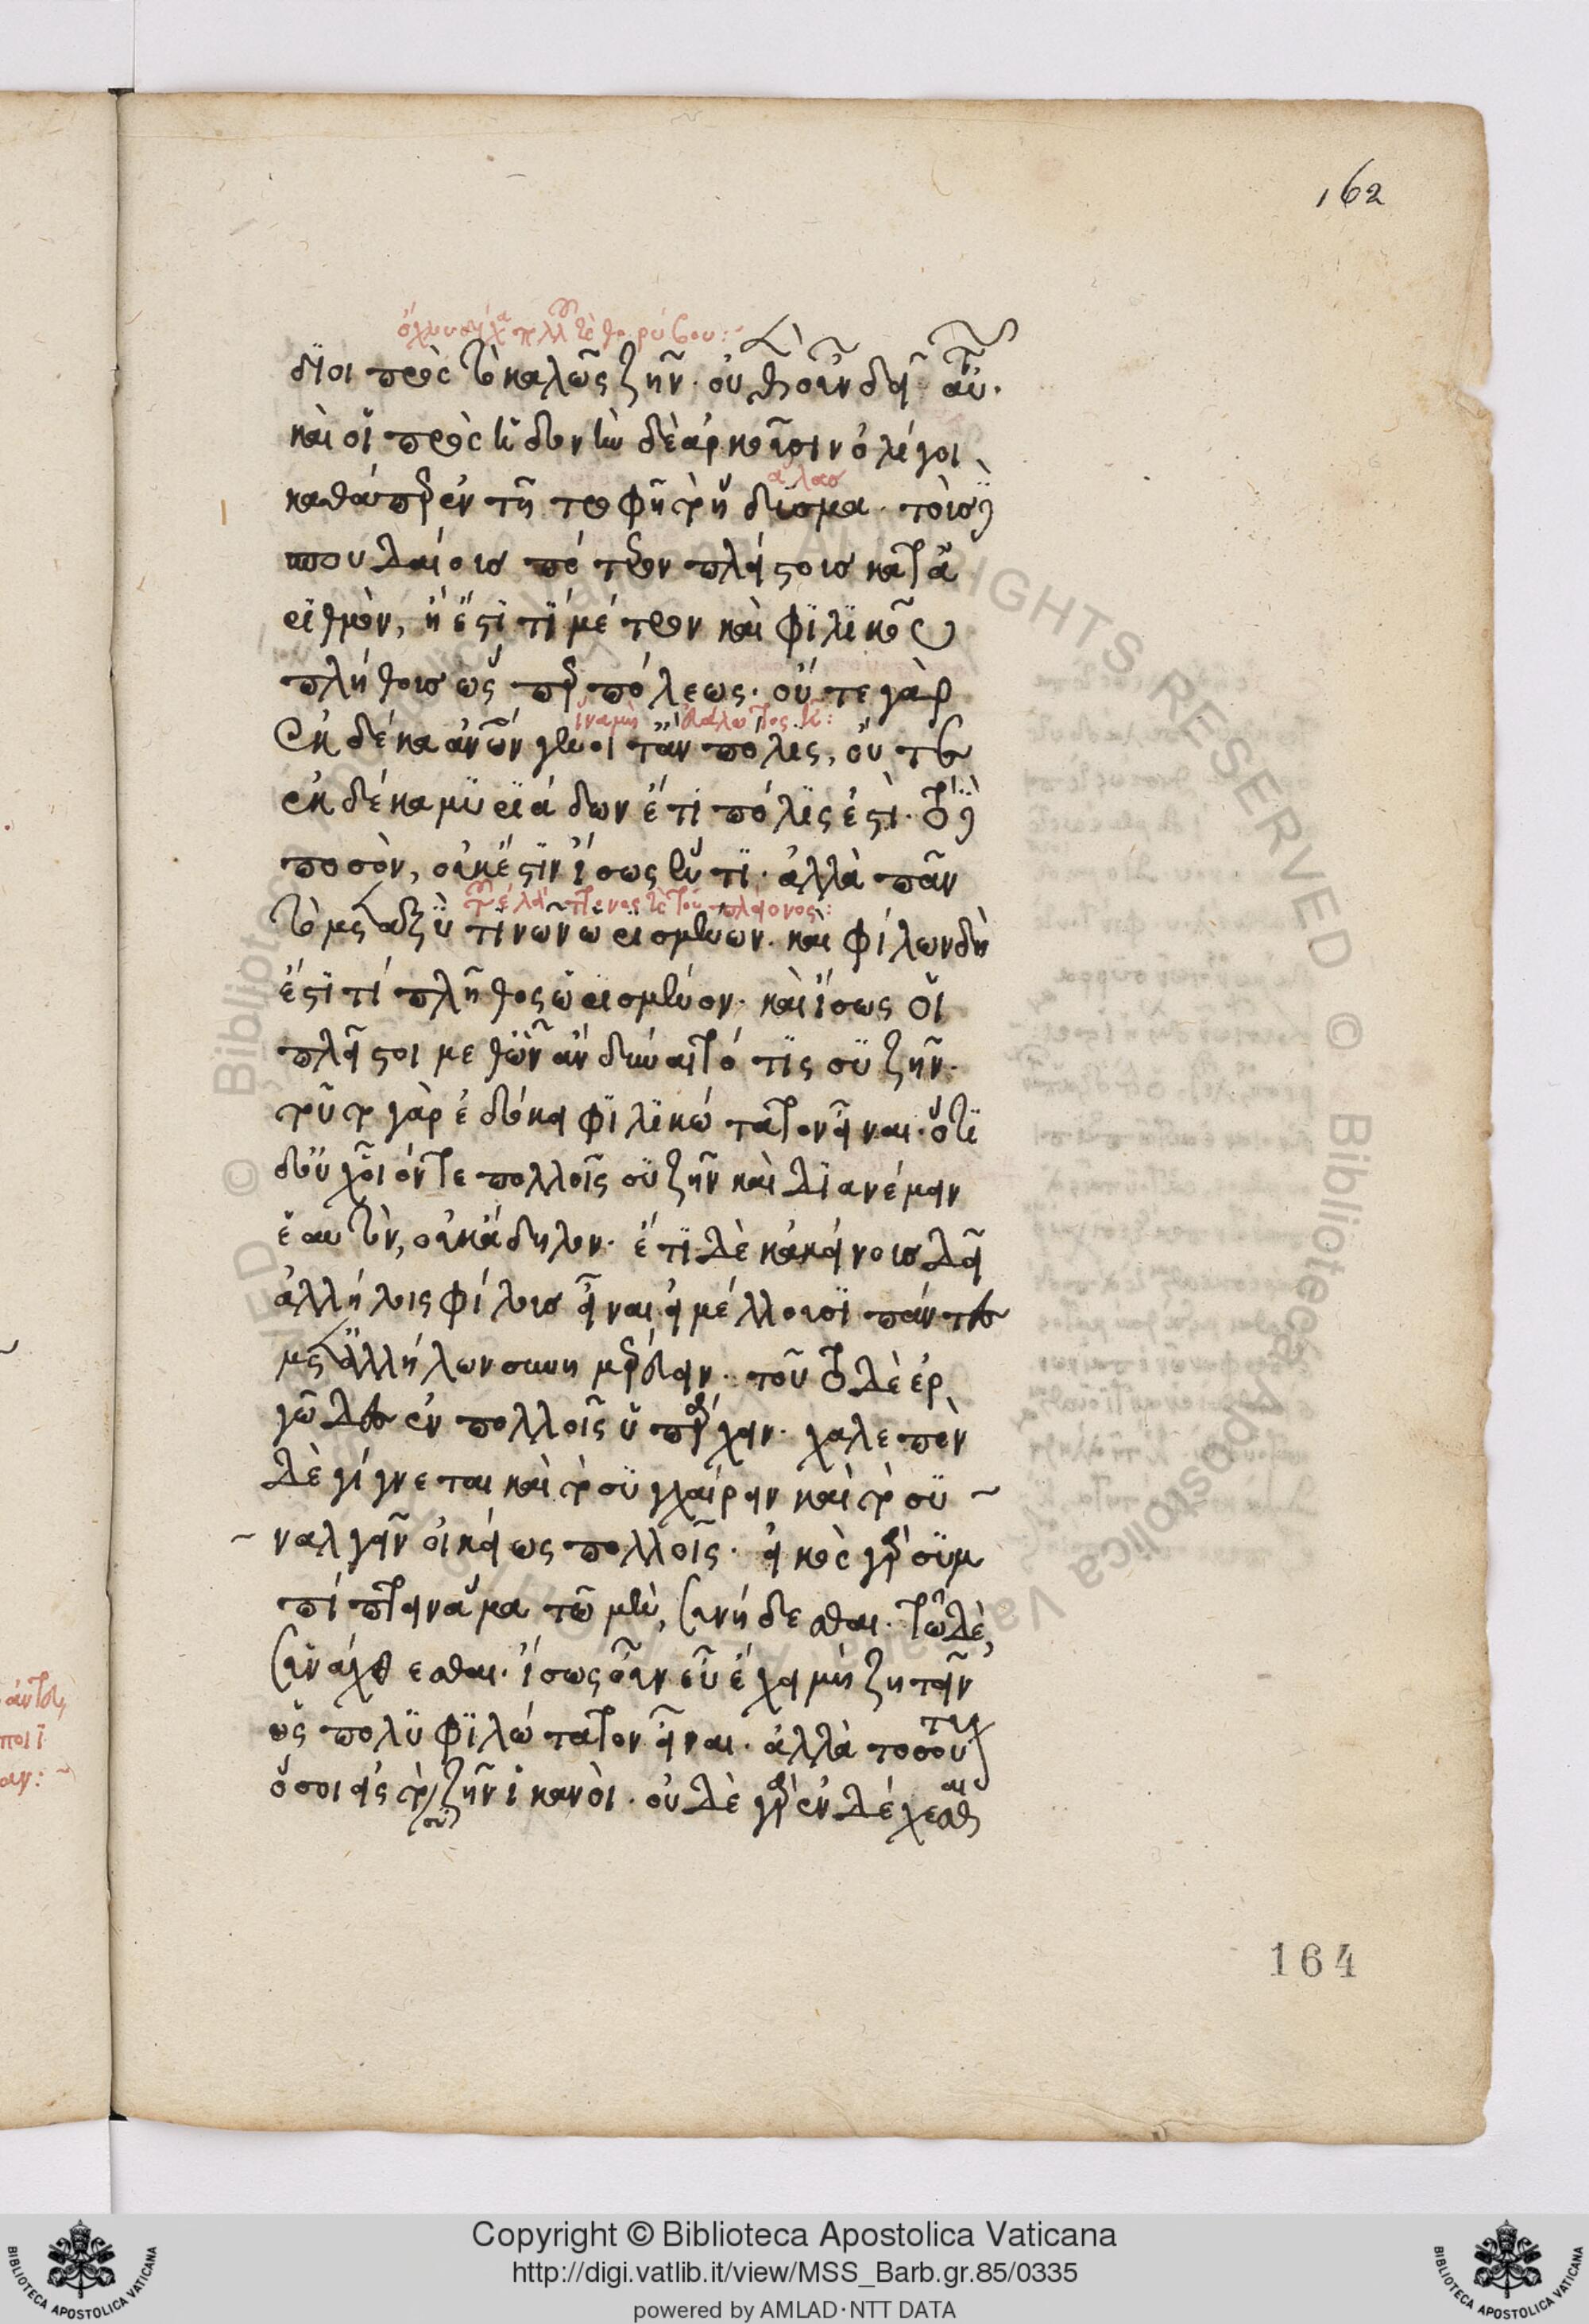 162
διοι πρὸς τὸ καλῶς ζῆν. οὐθὲν οὖν δεῖ αὐτῶν.
καὶ οἱ πρὸς ἡδονὴν δὲ ἀρκοῦσιν ὀλίγοι,
καθάπερ ἐν τῇ τροφῇ τὸ ἥδυσμα. τοὺς δὲ
σπουδαίους πότερον πλείστους κατὰ ἀ
ριθμὸν, ἢ ἔστι τι μέτρον καὶ φιλικοῦ
πλήθους ὥσπερ πόλεως. οὔτε γὰρ
ἐκ δέκα ἀνθρώπων γένοιτ' ἂν πόλις, οὔτε
ἐκ δέκα μυριάδων ἔτι πόλις ἐστί. τὸ δὲ
ποσὸν, οὐκ ἔστιν ἴσως ἕν τι. ἀλλὰ πᾶν
τὸ μεταξὺ τινῶν ὡρισμένων. καὶ φίλων δὴ
ἔστι τί πλῆθος ὡρισμένον. καὶ ἴσως οἱ
πλεῖστοι μεθ' ὧν ἂν δύναιτό τις συζῆν.
τοῦτο γὰρ ἐδόκει φιλικώτατον εἶναι. ὅτι
δ' οὐχ οἷόν τε πολλοῖς συζῆν καὶ διανέμειν
ἑαυτὸν, οὐκ ἄδηλον. ἔτι δὲ κἀκείνους δεῖ
ἀλλήλοις φίλους εἶναι, εἰ μέλλουσι πάντες
μετ' ἀλλήλων συνημερεύειν. τοῦτο δὲ ἐρ
γῶδες ἐν πολλοῖς ὑπάρχειν. χαλεπὸν
δὲ γίγνεται καὶ τὸ συγχαίρειν καὶ τὸ συ
ναλγεῖν οἰκείως πολλοῖς. εἰκὸς γὰρ συμ
πίπτειν ἅμα τῷ μὲν, συνήδεσθαι. τῷ δὲ,
συνάχθεσθαι. ἴσως οὖν εὖ ἔχει μὴ ζητεῖν
ὡς πολυφιλώτατον εἶναι. ἀλλὰ τοσούτους
ὅσοι εἰς τὸ συζῆν ἱκανοί. οὐδὲ γὰρ ἐνδέχεσθαι
164
Copyright © Biblioteca Apostolica Vaticana
http://digi.vatlib.it/view/MSS_Barb.gr.85/0335
powered by AMLAD·NTT DATA